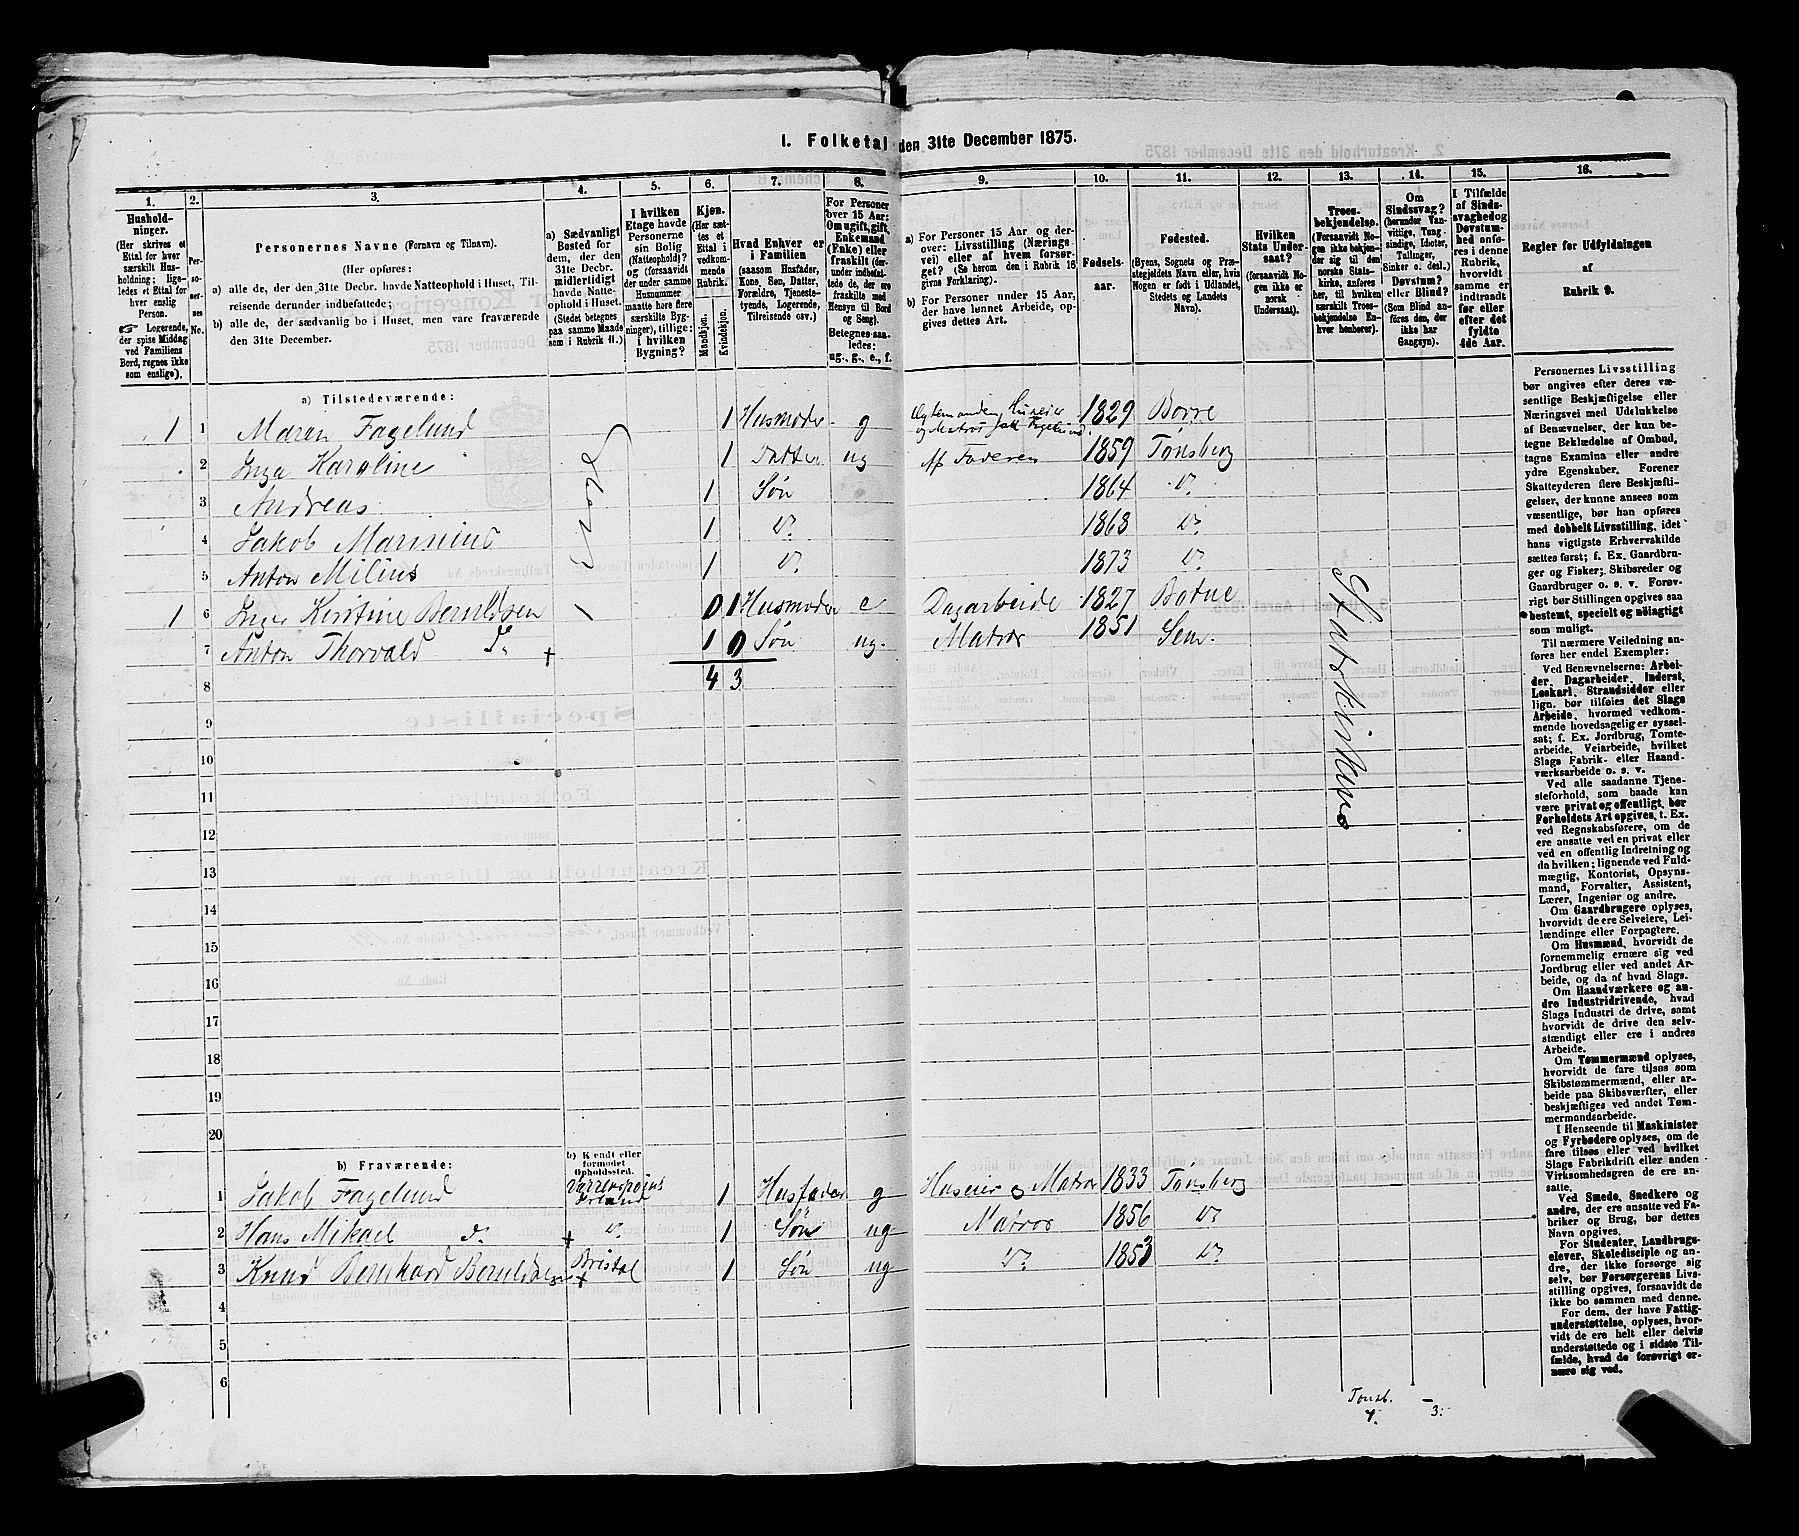 I. Folketal den 31te December 1875.
1. 2. 3. 4. 5. 6. 7. 8. 9. 10. 11. 12. 13. 14. 15. 16.
Hushold-
ninger.
(Her skrives et
Ettal for hver
særskilt Hus-
holdning; lige-
ledes et Ettal for
hver enslig
Person.
☞ Logerende,
der spise Middag
ved Familiens
Bord, regnes ikke
som enslige).
Per-
so-
ner-
nes
No.
Personernes Navne (Fornavn og Tilnavn).
(Her opføres:
a) alle de, der den 31te Decbr. havde Natteophold i Huset, Til-
reisende derunder indbefattede;
b) alle de, der sædvanlig bo i Huset, men vare fraværende
den 31te December.
a) Sædvanligt
Bosted for
dem, der den
31te Decbr.
midlertidigt
havde Natte-
ophold i Huset.
(Stedet betegnes
paa samme Maade
som i Rubrik 11.)
I hvilken
Etage havde
Personerne
sin Bolig
(Natteophold)?
og (forsaavidt
der under samme
Husnummer
maatte høre flere
særskilte Byg-
ninger), tillige:
i hvilken
Bygning?
Kjøn.
(Her sæt-
tes et
Ettal i
vedkom-
mende
Rubrik.
Mandkjøn.
Kvindekjøn.
Hvad Enhver er
i Familien
(saasom Husfader,
Kone, Søn, Datter,
Forældre, Tjeneste-
tyende, Logerende,
Tilreisende osv.)
For Personer
over 15 Aar:
Om ugift, gift,
Enkemand
(Enke) eller
fraskilt (der-
under indbefat-
tede de, der ere
fraskilte med
Hensyn til Bord
og Seng).
Betegnes saa-
ledes:
ug., g., e., f.
a) For Personer 15 Aar og der-
over: Livsstilling (Nærings-
vei) eller af hvem forsør-
get? (Se herom den i Rubrik 16
givne Forklaring).
b) For Personer under 15 Aar,
der have lønnet Arbeide, op-
gives dettes Art.
Fødsels-
aar.
Fødested.
(Byens, Sognets og Præ-
stegjeldets Navn eller, hvis
Nogen er født i Udlandet,
Stedets og Landets
Navn).
Hvilken
Stats Under-
saat?
(opgives for-
saavidt No-
gen ikke er
norsk
Undersaat).
Troes-
bekjendelse.
(Forsaavidt No-
gen ikke bekjen-
der sig til den
norske Stats-
kirke, anføres
her, til hvilken
særskilt Troes-
bekjendelse En-
hver henhører).
Om
Sindssvag?
(herunder Van-
vittige, Tung-
sindige, Idioter,
Tullinger,
Sinker o. desl.)
Døvstum?
eller Blind?
(Som Blind an-
føres den, der
ikke har
Gangsyn).
I Tilfælde
af Sinds-
svaghed og
Døvstum-
hed anfø-
res i denne
Rubrik,
hvorvidt
samme er
indtraadt
før eller
efter det
fyldte
4de Aar.
Regler for Udfyldningen
af
Rubrik 9.
a) Tilstedeværende:
1 1 Maren Fagelund 1 Husmoder g Husejer og Matros Jak. Fagelund. 1829 Borre
2 Inga Karoline 1 Datter ug Af Faderen 1859 Tønsberg
3 Andreas 1 Søn 1864 Do
4 Jakob Marinius 1 Do 1868 Do
5 Anton Milius 1 Do 1873 Do
1 6 Inger Kirstine Beruldsen 1 0 1 Husmoder e Dagarbeide 1827 Botne
7 Anton Thorvald d. + 1 0 Søn ug. Matros 1851 Sem.
8 4 3
Statskirken
9
10
11
12
13
14
15
16
17
18
19
20
b) Fraværende:
b) Kendt eller
formodet
Opholdssted.
1 Jakob Fagelund 1 Husfader g Huseier og Matros 1833 Tønsberg
2 Hans Mikael d. + Do 1 Søn ug Matros 1856 Do
3 Knud Bernhard Beruldsen Bristol + 1 Søn ug Do 1853 Do
4
5
6
Tønsb.
4. – 3.
Personernes Livsstilling
bør angives efter deres væ-
sentlige Beskjæftigelse eller
Næringsvei med Udelukkelse
af Benævnelser, der kun be-
tegne Beklædelse af Ombud,
tagne Examina eller andre
ydre Egenskaber. Forener
Skatteyderen flere Beskjæfti-
gelser, der kunne ansees som
væsentlige, bør han opføres
med dobbelt Livsstilling, idet
hans vigtigste Erhvervskilde
sættes først; f. Ex. Gaardbru-
ger og Fisker; Skibsreder og
Gaardbruger o. s. v. Forøv-
rigt bør Stillingen opgives saa
bestemt, specielt og nøiagtigt
som muligt.
Til nærmere Veiledning an-
føres her endel Exempler:
Ved Benævnelserne: Arbei-
der, Dagarbeider, Inderst,
Løskarl, Strandsidder eller
lign. bør tilføies det Slags
Arbeide, hvormed vedkom-
mende hovedsagelig er syssel-
sat; f. Ex. Jordbrug, Tomte-
arbeide, Veiarbeide, hvilket
Slags Fabrik- eller Haand-
værksarbeide o. s. v.
Ved alle saadanne Tjene-
steforhold, som baade kan
være privat og offentligt, bør
Forholdets Art opgives, t. Ex.
ved Regnskabsførere, om de
ere ansatte ved en privat eller
ved en offentlig Indretning og
da hvilken; lignende ved Fuld-
mægtig, Kontorist, Opsyns-
mand, Forvalter, Assistent,
Lærer, Ingeniør og andre.
Om Gaardbrugere oplyses,
hvorvidt de ere Selveiere, Lei-
lændinge eller Forpagtere.
Om Husmænd, hvorvidt de
fornemmelig ernære sig ved
Jordbrug eller ved andet Ar-
beide, og da af hvad Slags.
Om Haandværkere og an-
dre Industridrivende, hvad
Slags Industri de drive, samt
hvorvidt de drive den selv-
stændigt eller ere i andres
Arbeide.
Om Tømmermænd oplyses,
hvorvidt de fare tilsøs som
Skibstømmermænd, eller ar-
beide paa Skibsværfter, eller
beskjæftiges ved andet Tøm-
mermandsarbeide.
I Henseende til Maskinister
og Fyrbødere oplyses, om de
fare tilsøs eller ved hvilket
Slags Fabrikdrift eller anden
Virksomhedsgren de ere an-
satte.
Ved Smede, Snedkere og
andre, der ere ansatte ved Fa-
briker og Brug, bør dettes
Navn opgives.
For Studenter, Landbrugs-
elever, Skoledisciple og an-
dre, der ikke forsørge sig
selv, bør Forsørgerens Livs-
stilling opgives, forsaavidt de
ikke bo sammen med denne.
For dem, der have Fattig-
understøttelse, oplyses, hvor-
vidt de ere helt eller delvis
understøttede og i sidste Til-
fælde, hvad de forøvrigt er-
nære sig ved.